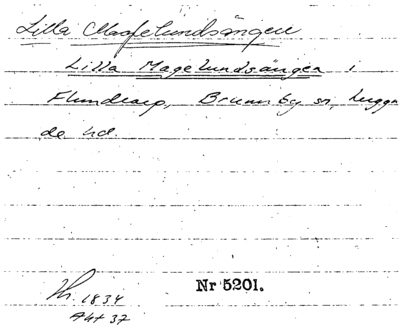 Lilla Maglelundsängen
Lilla Magelundsängen i
Flundrarp, Brunnby sn, Luggu
de hd.
Nr 5201.
1834
Akt 37